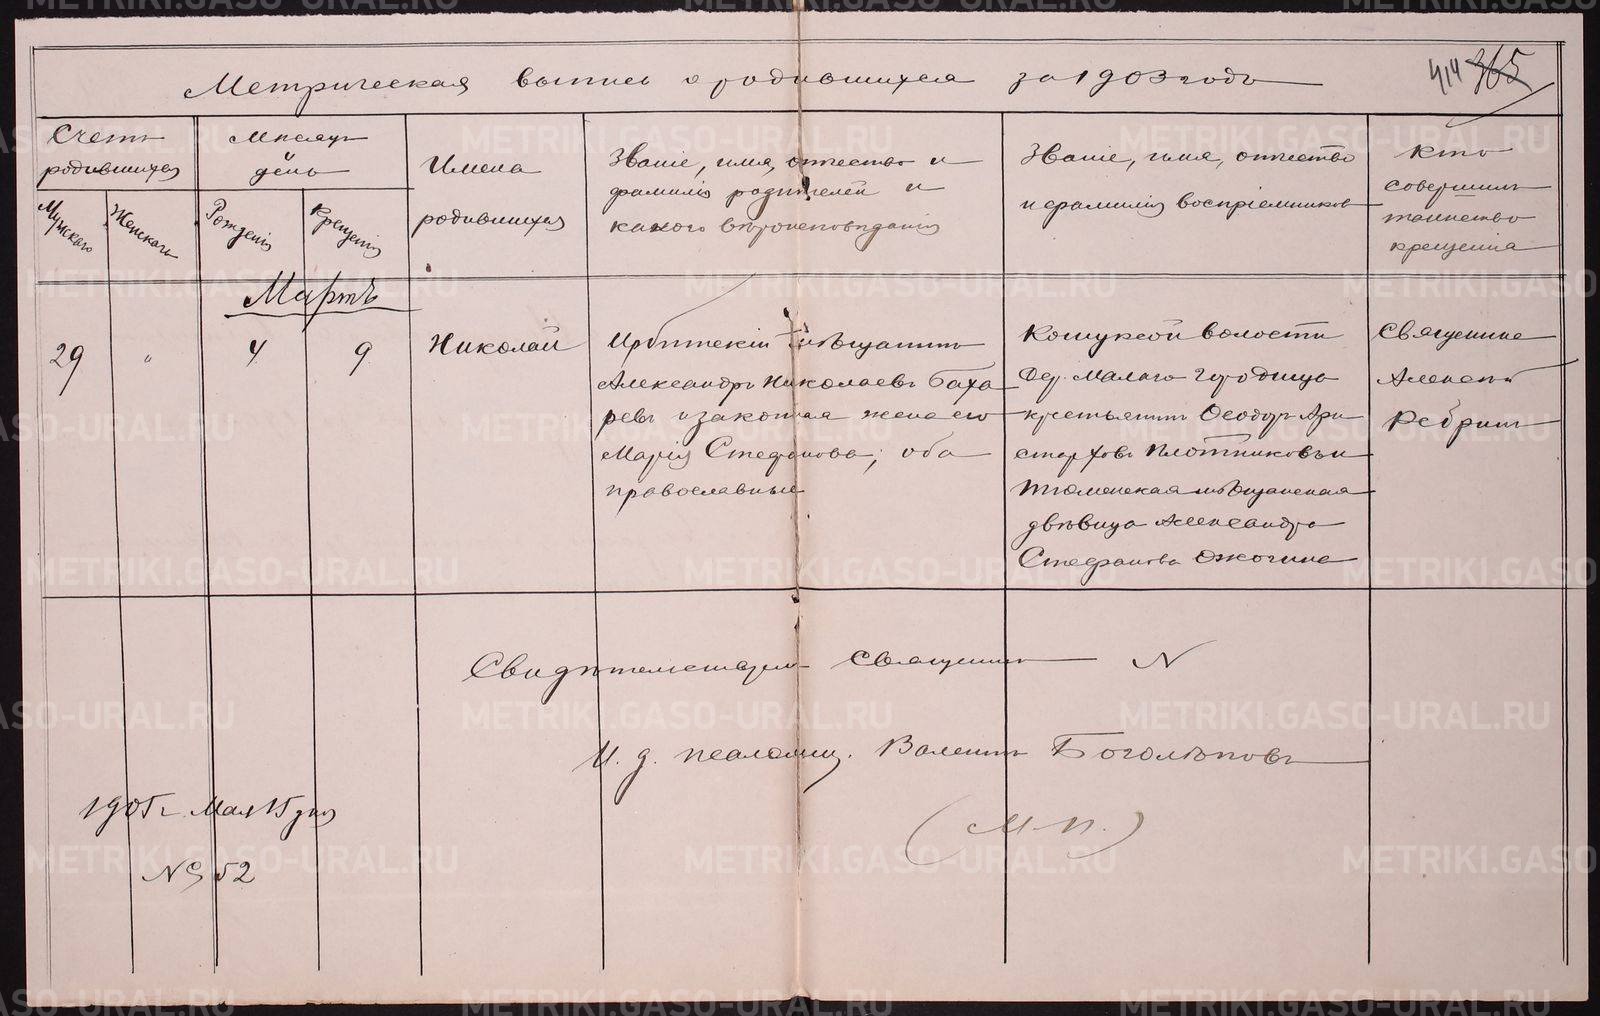 Метрическая выпись о родившихся за 1903 годъ
414 365
Счетъ родившихся
Мужскаго
Женскаго
Мѣсяцъ и день
Рожденія
Крещенія
Имена родившихся
Званіе, имя, отчество и
фамилія родителей и
какого вѣроисповѣданія
Званіе, имя, отчество
и фамилія воспріемниковъ
Кто
совершилъ
таинство
крещенія
Мартъ
29
"
4
9
Николай
Ирбитскій мѣщанинъ
Александръ Николаевъ Баха
ревъ и законная жена его
Марія Стефанова, оба
православные
Кошукской волости
Дер. Малаго Городища
крестьянинъ Ѳеодоръ Ари
старховъ Плотниковъ и
Тюменская мѣщанская
дѣвица Александра
Стефанова Ожогина
Священникъ
Алексѣй
Ребринъ
Свидѣтельствуемъ Священникъ N
И. д. псаломщ. Валентинъ Боголѣповъ
1905 г. Мая 15 дня
(М. П.)
№ 52